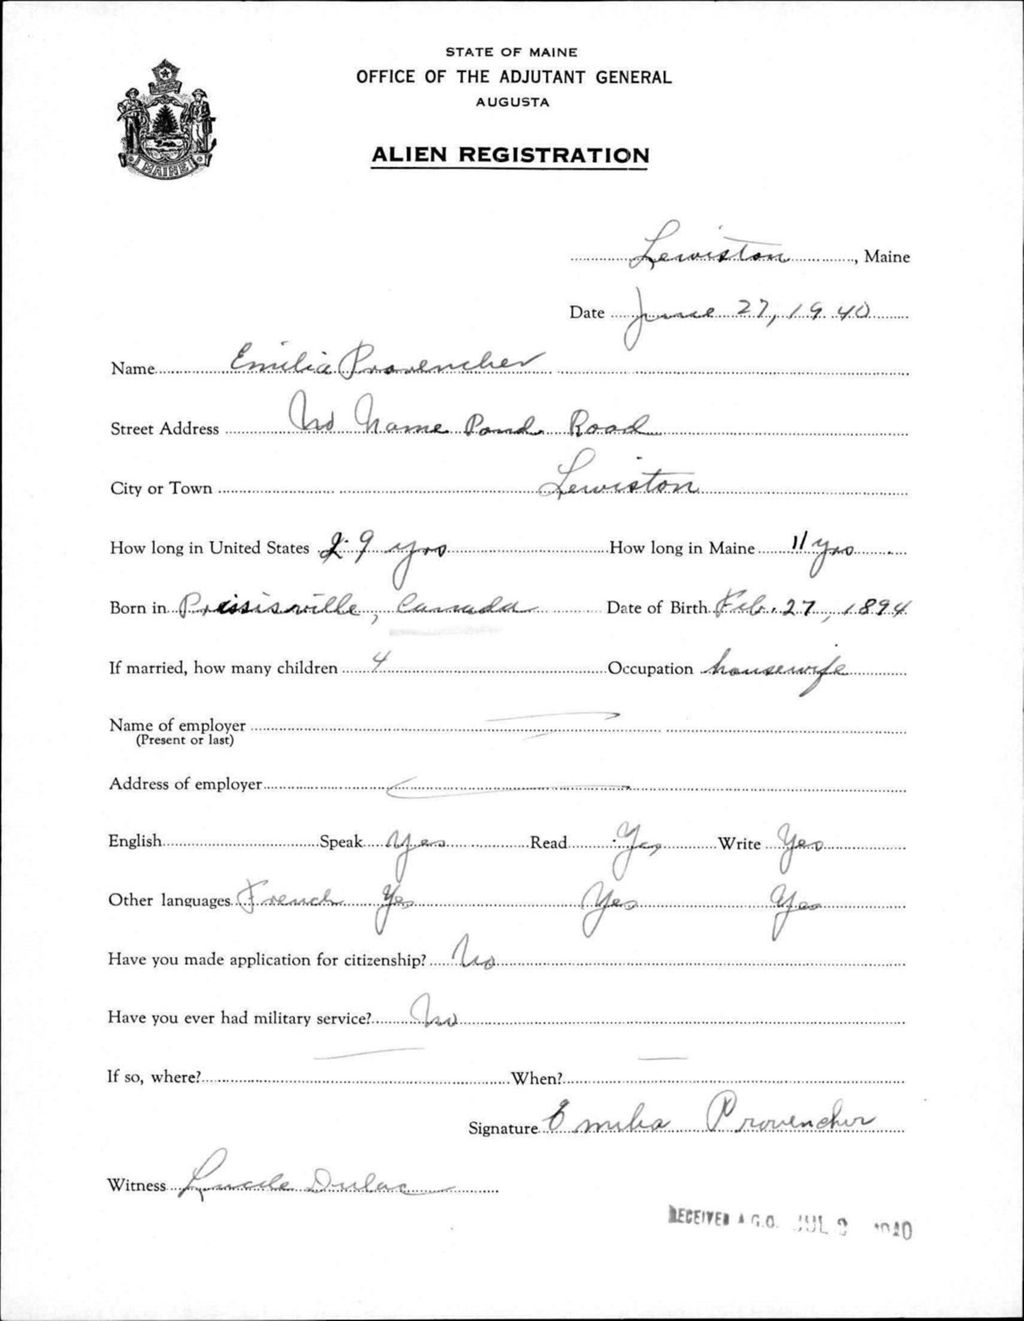 STATE OF MAINE
OFFICE OF THE ADJUTANT GENERAL
AUGUSTA
ALIEN REGISTRATION
MAINE
Lewiston, Maine
Date June 27, 1940
Name Emilia Provencher
Street Address No Name Pond Road
City or Town Lewiston
How long in United States 29 yrs How long in Maine 11 yrs
Born in Canada Date of Birth Feb. 27, 1894
If married, how many children 4 Occupation housewife
Name of employer
(Present or last)
Address of employer
English Speak Yes Read Yes Write Yes
Other languages French Yes Yes Yes
Have you made application for citizenship? No
Have you ever had military service? No
If so, where? When?
Signature Emilia Provencher
Witness Lucile Dulac
RECEIVED A.G.O. JUL 1940